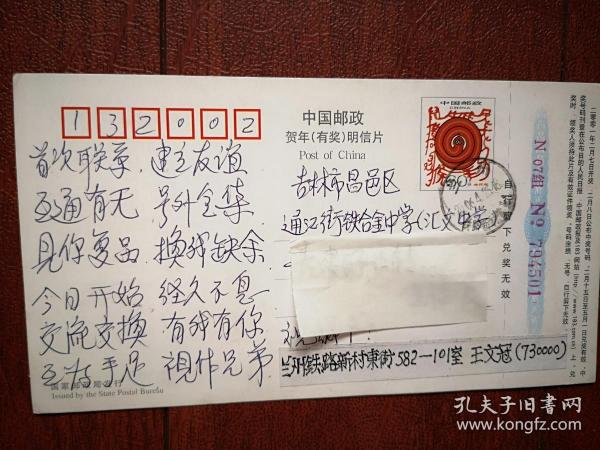 132002
中国邮政
贺年(有奖)明信片
Post of China
中国邮政
首次联系 建立友谊
互通有无 号外全集
见你复品 换我缺余
今日开始 经久不息
交流交换 有我有你
互为手足 视作兄弟
吉林市昌邑区
通江街铁合金中学(汇文中学)
兰州铁路新村东街582—101室 王文冠(730000)
国家邮政局发行
Issued by the State Postal Bureau
自行留下兑奖无效
N 07组 № 794501
二零零一年二月七日开奖
孔夫子旧书网
www.kongfz.com